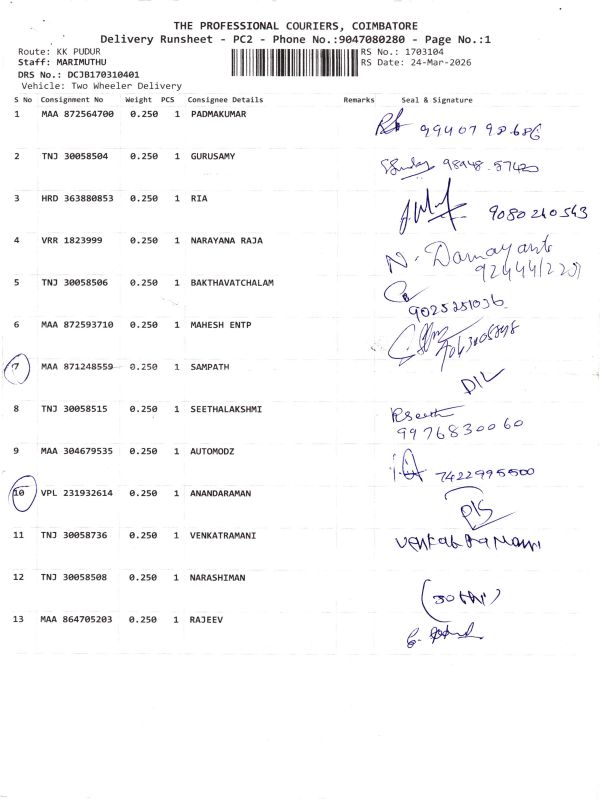 THE PROFESSIONAL COURIERS, COIMBATORE
Delivery Runsheet - PC2 - Phone No.:9047080280 - Page No.:1
Route: KK PUDUR RS No.: 1703104
Staff: MARIMUTHU RS Date: 24-Mar-2026
DRS No.: DCJB170310401
Vehicle: Two Wheeler Delivery
S No Consignment No Weight PCS Consignee Details Remarks Seal & Signature
1 MAA 872564700 0.250 1 PADMAKUMAR
2 TNJ 30058504 0.250 1 GURUSAMY
3 HRD 363880853 0.250 1 RIA 9080240543
4 VRR 1823999 0.250 1 NARAYANA RAJA N. Damayanti
5 TNJ 30058506 0.250 1 BAKTHAVATCHALAM
9025251036
6 MAA 872593710 0.250 1 MAHESH ENTP
7 MAA 871248559 0.250 1 SAMPATH
D/L
8 TNJ 30058515 0.250 1 SEETHALAKSHMI
9976830060
9 MAA 304679535 0.250 1 AUTOMODZ 7422995500
10 VPL 231932614 0.250 1 ANANDARAMAN
11 TNJ 30058736 0.250 1 VENKATRAMANI
12 TNJ 30058508 0.250 1 NARASHIMAN
13 MAA 864705203 0.250 1 RAJEEV